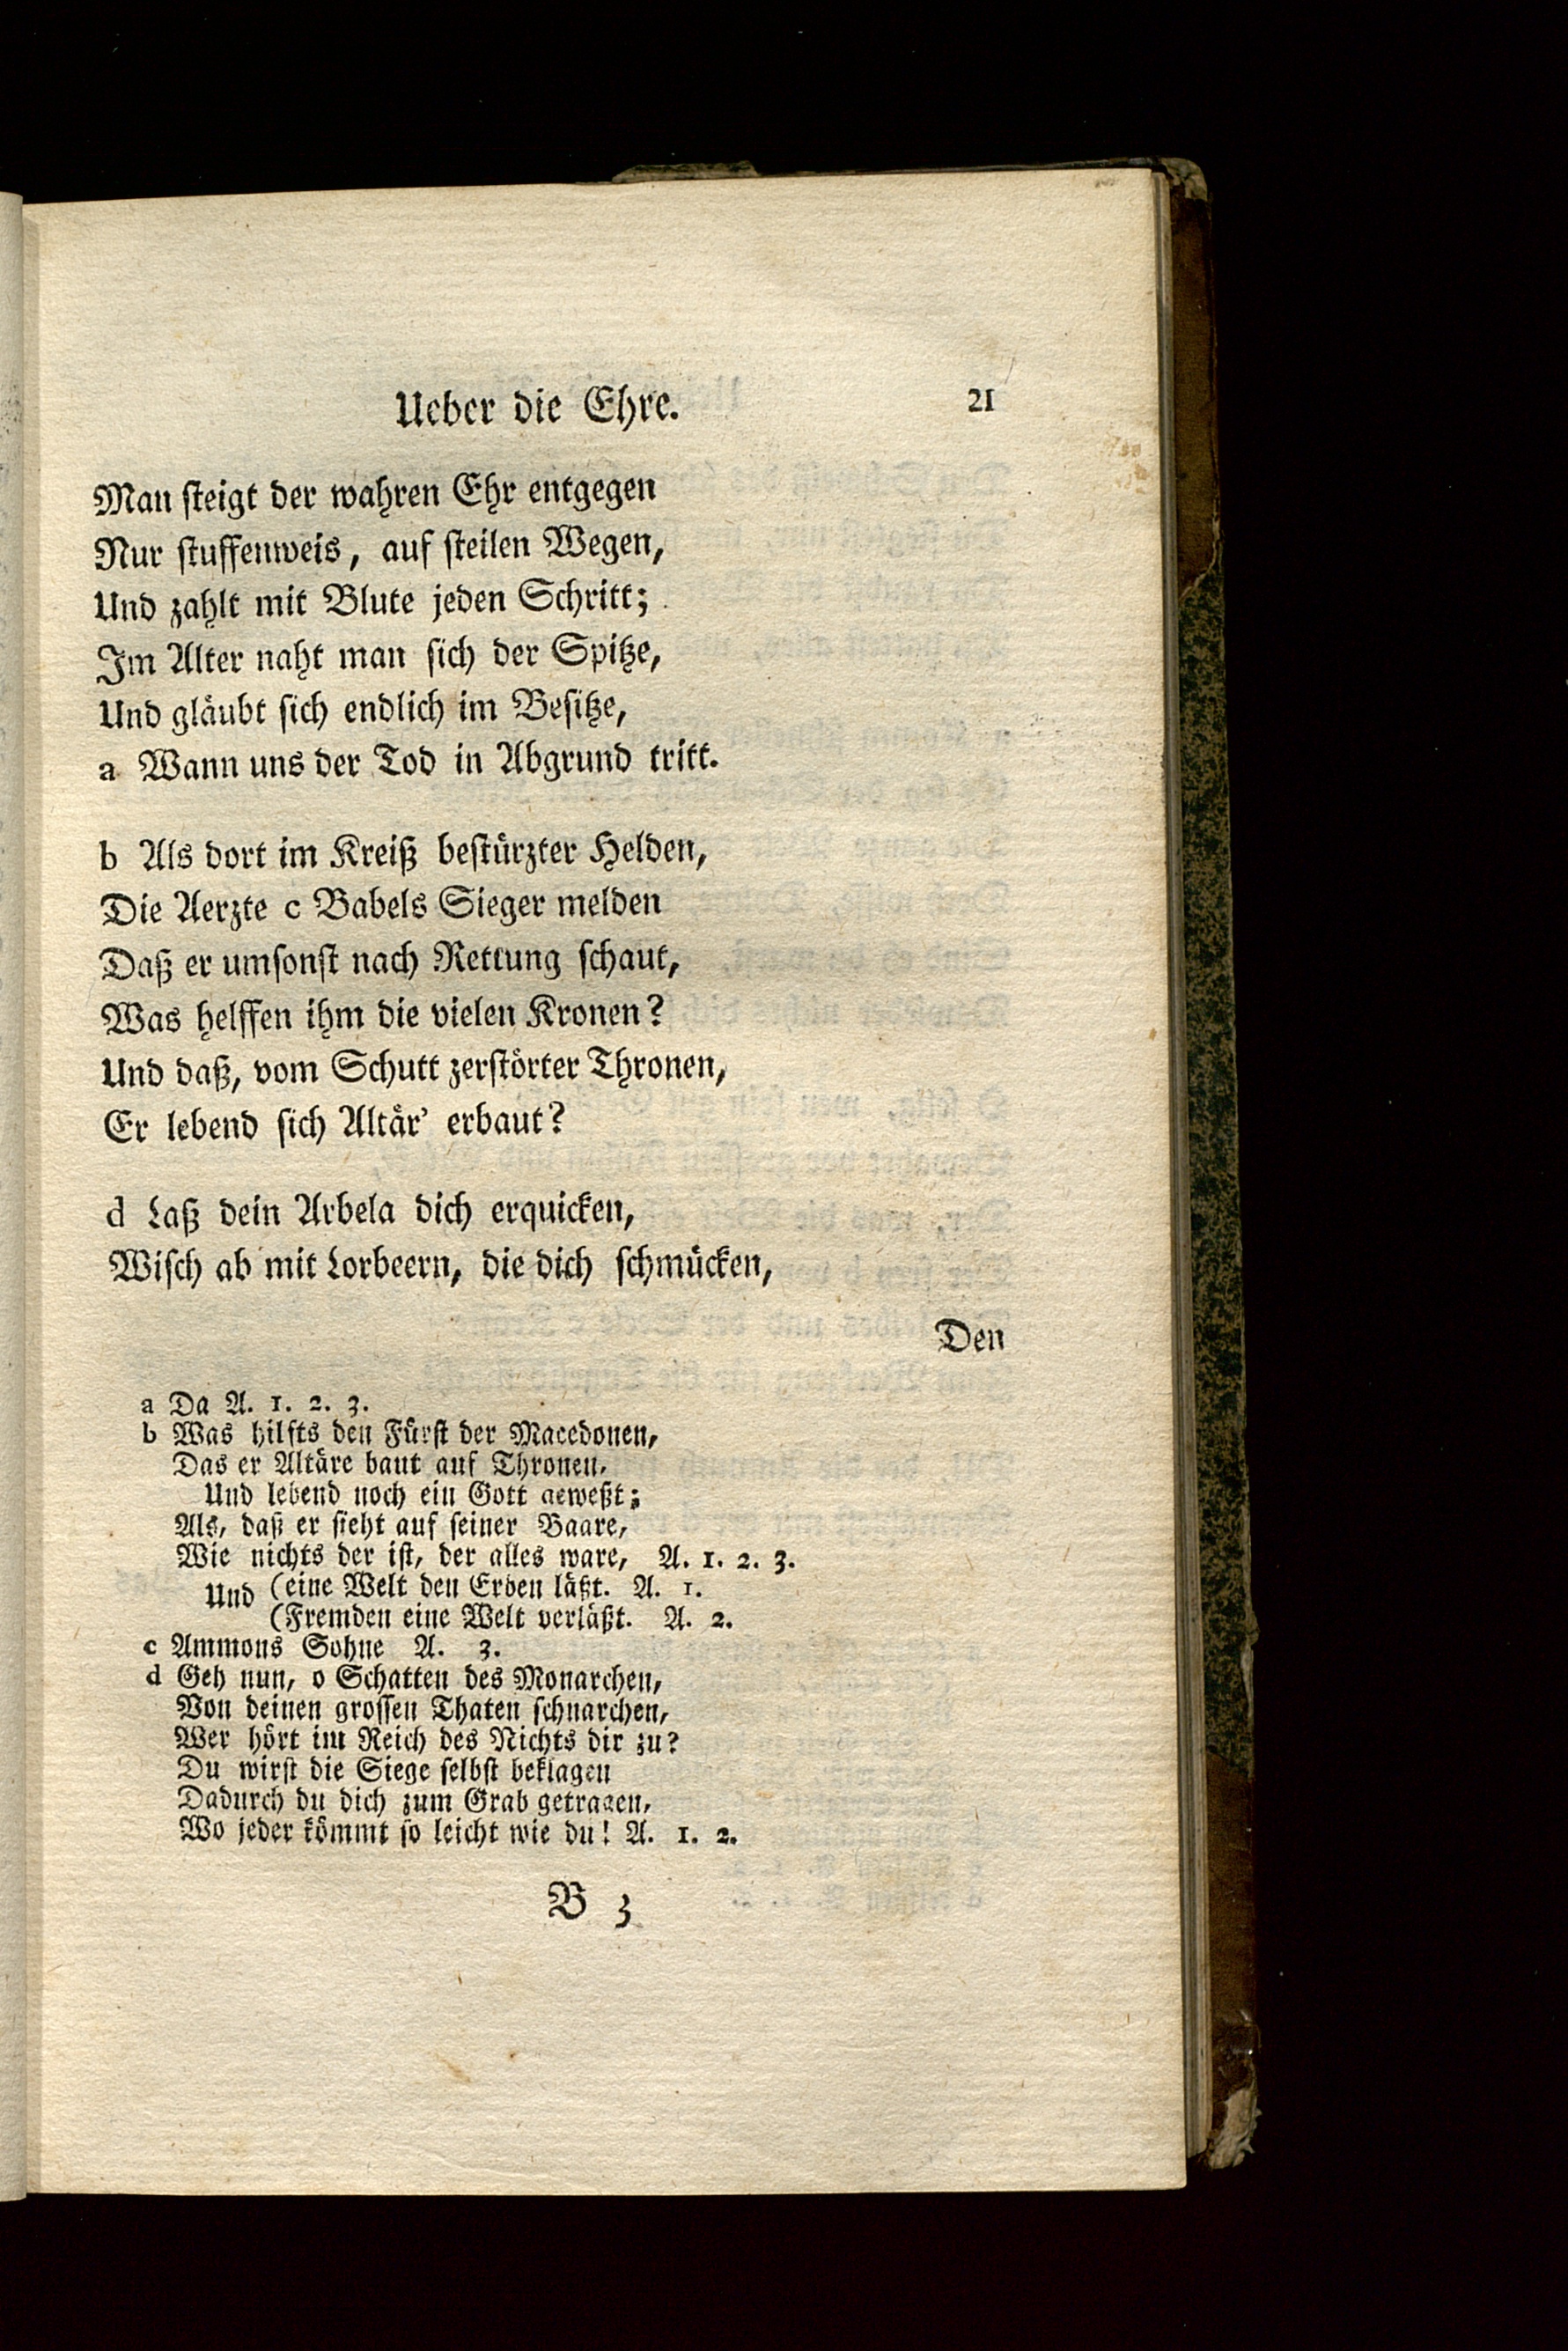 Ueber die Ehre. 21
Man steigt der wahren Ehr entgegen
Nur stuffenweis, auf steilen Wegen,
Und zahlt mit Blute jeden Schritt;
Im Alter naht man sich der Spitze,
Und gläubt sich endlich im Besitze,
a Wann uns der Tod in Abgrund tritt.
b Als dort im Kreiß bestürzter Helden,
Die Aerzte c Babels Sieger melden
Daß er umsonst nach Rettung schaut,
Was helffen ihm die vielen Kronen?
Und daß, vom Schutt zerstörter Thronen,
Er lebend sich Altär' erbaut?
d Laß dein Arbela dich erquicken,
Wisch ab mit Lorbeern, die dich schmücken,
Den
a Da A. 1. 2. 3.
b Was hilfts den Fürst der Macedonen,
Das er Altäre baut auf Thronen,
Und lebend noch ein Gott geweßt;
Als, daß er sieht auf seiner Baare,
Wie nichts der ist, der alles ware, A. 1. 2. 3.
Und (eine Welt den Erben läßt. A. 1.
(Fremden eine Welt verläßt. A. 2.
c Ammons Sohne A. 3.
d Geh nun, o Schatten des Monarchen,
Von deinen grossen Thaten schnarchen,
Wer hört im Reich des Nichts dir zu?
Du wirst die Siege selbst beklagen
Dadurch du dich zum Grab getragen,
Wo jeder kömmt so leicht wie du! A. 1. 2.
B 3